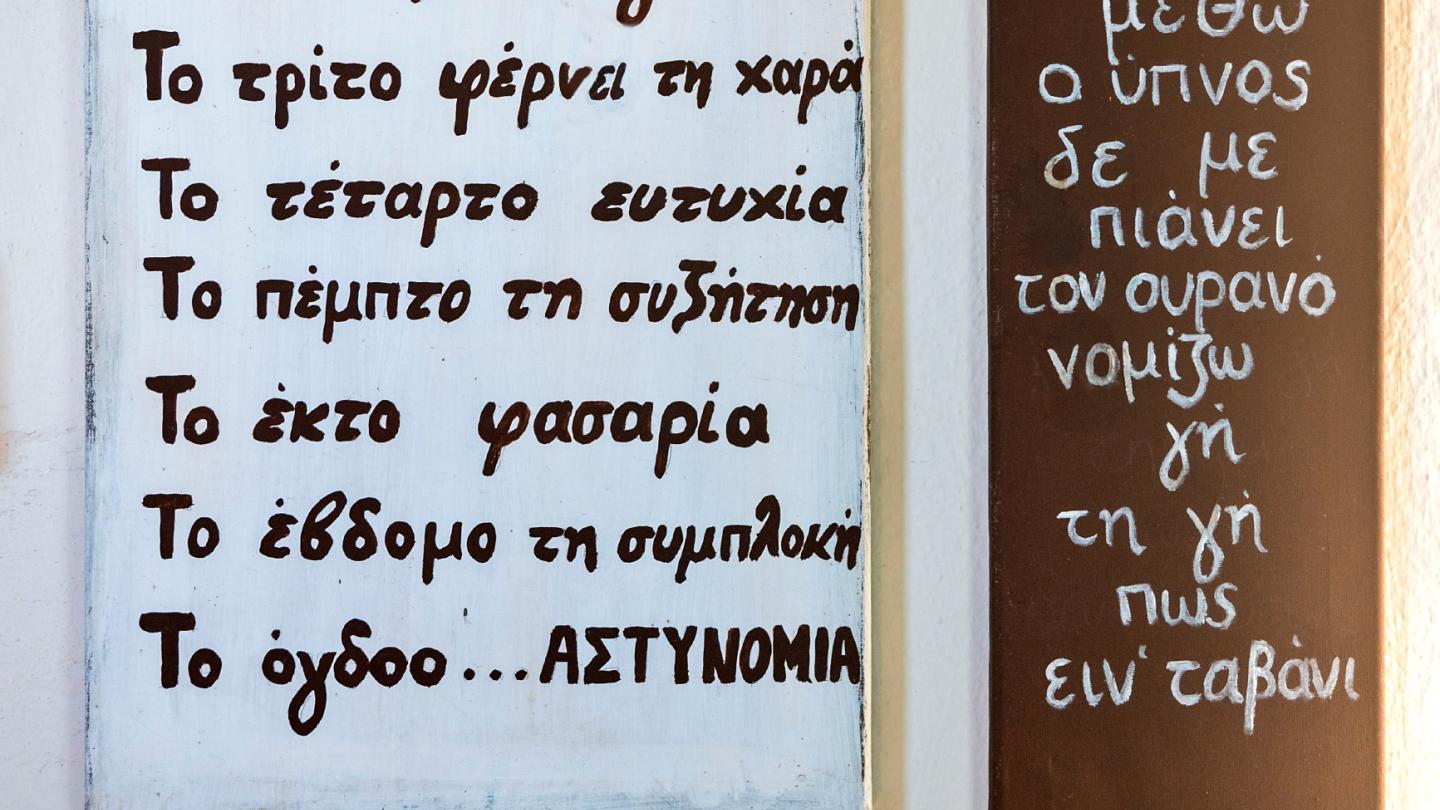 Το τρίτο φέρνει τη χαρά
Το τέταρτο ευτυχία
Το πέμπτο τη συζήτηση
Το έκτο φασαρία
Το έβδομο τη συμπλοκή
Το όγδοο...ΑΣΤΥΝΟΜΙΑ
μεθώ
ο ύπνος
δε με
πιάνει
τον ουρανό
νομίζω
γή
τη γή
πως
ειν' ταβάνι